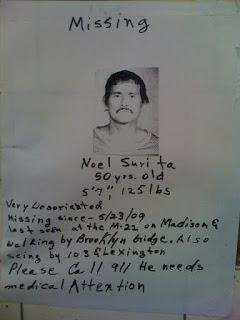 Missing
Noel Surita
50 yrs. old
5'7" 125lbs
Very Desoriested
Missing since - 5/23/09
last seen at the M-22 on Madison &
walking by Brooklyn bridge. Also
seing by 103 & Lexington
Please Call 911 He needs
medical Attention